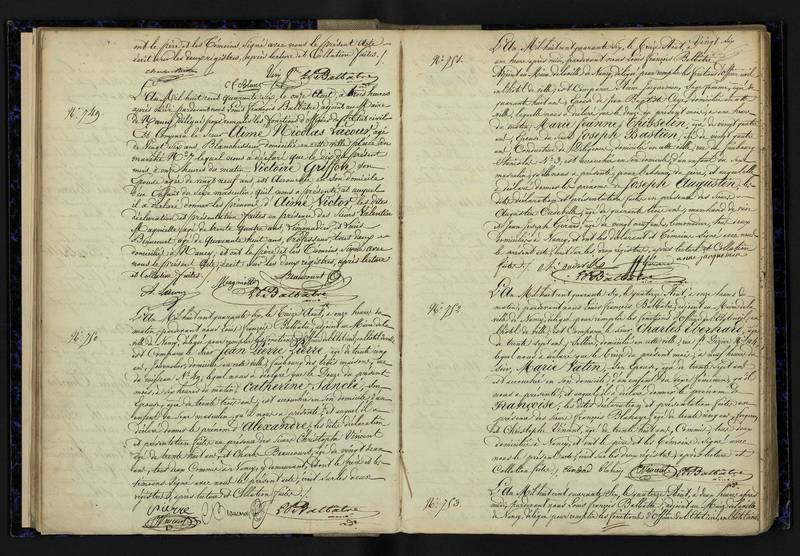 ont le père et les témoins signé avec nous le présent acte
écrit sur les deux registres, après lecture et collation faites./.
N° 749
L'An Mil huit cent quarante six, le onze Août, à trois heures
après midi pardevant nous François Balbâtre, adjoint au Maire
de Nancy, délégué pour remplir les fonctions d'officier de l'État civil
Est Comparu le sieur Aimé Nicolas Lacour, âgé
de Vingt six ans Blanchisseur domicilié en cette ville place du
marché N° 7 lequel nous a déclaré que le dix du présent
mois, à onze heures du matin, Victoire Griffon son
Épouse âgée de vingt neuf ans, est accouchée en son domicile
d'un Enfant du sexe masculin qu'il nous a présenté, et auquel
il a déclaré donner les prénoms d'Aimé Victor, les dites
déclaration et présentation faites en présence des sieurs Valentin
âgé de trente quatre ans, Limonadier et Louis
Beaucourt, âgé de quarante huit ans, Professeur tous deux
domiciliés à Nancy, et ont le père et les témoins signé avec
nous le présent acte, écrit sur les deux registres, après lecture
et Collation faites./.
Beaucourt
A. Lacour
Balbâtre
N° 750
L'An Mil huit cent quarante six, le treize Août, à onze heures du
matin, pardevant nous François Balbâtre, adjoint au Maire de la
ville de Nancy, délégué pour remplir les fonctions d'officier de l'État civil, en l'hôtel de ville,
Est Comparu le sieur Jean Pierre Pierre, âgé de trente cinq
ans, domicilié en cette ville, faubourg des trois maisons, rue
lequel nous a déclaré que le Douze du présent
mois, à six heures du matin, Catherine Sanclé, son
Épouse, âgée de trente trois ans, est accouchée en son domicile, d'un
enfant du sexe masculin, qu'il nous a présenté, et auquel il a
déclaré donner le prénom d'Alexandre, les dites déclaration
et présentation faites en présence des sieurs Christophe Vincent
âgé de trente huit ans, et Charles Beaucourt, âgé de vingt deux
ans, tous deux Commis à Nancy, y demeurant, et ont le père et les
témoins signé avec nous le présent acte, écrit sur les deux
registres, après lecture et Collation faites./.
pierre
Vincent
C. Beaucourt
Balbâtre
N° 751
L'An Mil huit cent quarante six, le treize Août, à
une heure après midi, pardevant nous François Balbâtre
Adjoint au Maire de la ville de Nancy, délégué pour remplir les fonctions d'officier de l'État civil
en l'hôtel de ville, est Comparue Anne Jacquemin, Sage femme, âgée de
quarante huit ans, Épouse de Jean Baptiste domiciliée en cette
ville, laquelle nous a déclaré que le du présent mois, à une heure
du matin, Marie Jeanne Thouvelin, âgée de vingt quatre
ans, Épouse du sieur Joseph Bastien, âgé de vingt quatre
ans, Conducteur de Diligences, domicilié en cette ville, rue du faubourg
Stanislas N° 3, est accouchée en son domicile, d'un enfant du sexe
masculin, qu'elle nous a présenté, pour l'absence du père, et auquel elle a
déclaré donner les prénoms de Joseph Augustin, les
dites déclaration et présentation faites en présence des sieurs
Augustin âgé de quarante cinq ans, marchand de vin
et Jean Joseph Gérard, âgé de vingt neuf ans, limonadier, tous deux
domiciliés à Nancy, et ont les déclarant et témoins signé avec nous
le présent acte, écrit sur les deux registres, après lecture et Collation
faites./.
anne jacquemin
Balbâtre
N° 752
L'An Mil huit cent quarante six, le quatorze Août, à onze heures du
matin, pardevant nous François Balbâtre, adjoint au Maire de la
ville de Nancy, délégué pour remplir les fonctions d'officier de l'État civil, en
l'hôtel de ville, Est Comparu le sieur Charles Eberhard, âgé
de trente sept ans, Sellier, domicilié en cette ville, rue
lequel nous a déclaré que le treize du présent mois, à neuf heures du
soir, Marie Vatin, son Épouse, âgée de trente sept ans
est accouchée en son domicile, d'un enfant du sexe féminin, qu'il
nous a présenté, et auquel il a déclaré donner le prénom de
Françoise, les dites déclaration et présentation faites en
présence des sieurs François Blahay, âgé de trente cinq ans, forgeron
et Christophe Vincent, âgé de trente huit ans, Commis, tous deux
domiciliés à Nancy, et ont le père et les témoins signé avec
nous le présent acte, écrit sur les deux registres, après lecture et
Collation faites./.
Vincent
Balbâtre
N° 753
L'An Mil huit cent quarante six, le quatorze Août, à une heure après
midi, pardevant nous François Balbâtre, adjoint au Maire de la ville
de Nancy, délégué pour remplir les fonctions d'officier de l'État civil, en l'hôtel de ville